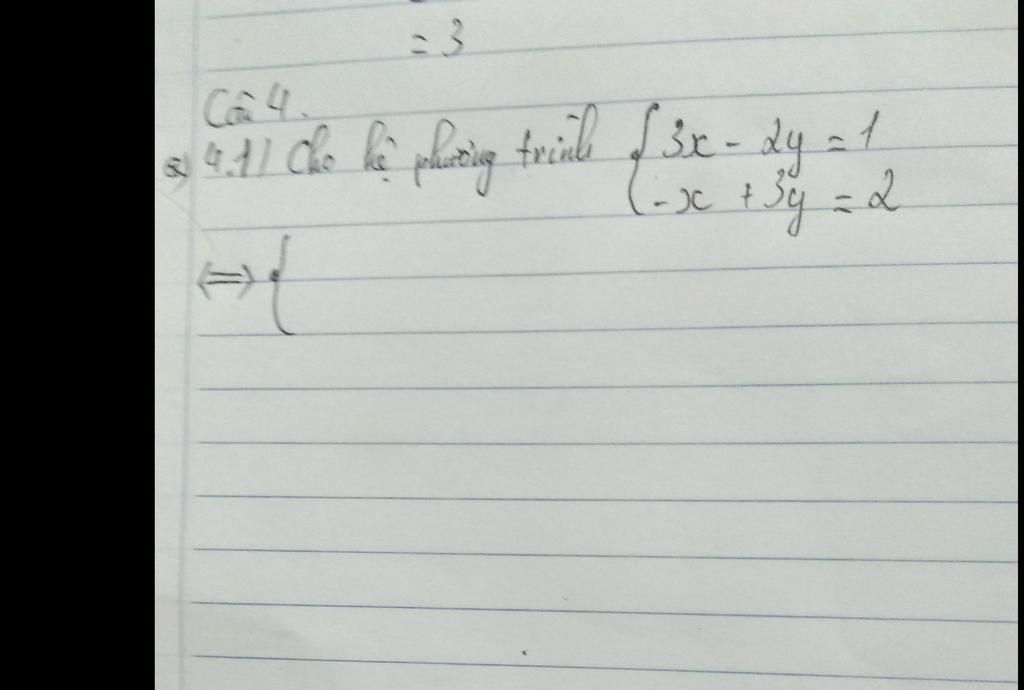 = 3
Câu 4.
a) 4.1/ Cho hệ phương trình { 3x - 2y = 1
-x + 3y = 2
<=> {